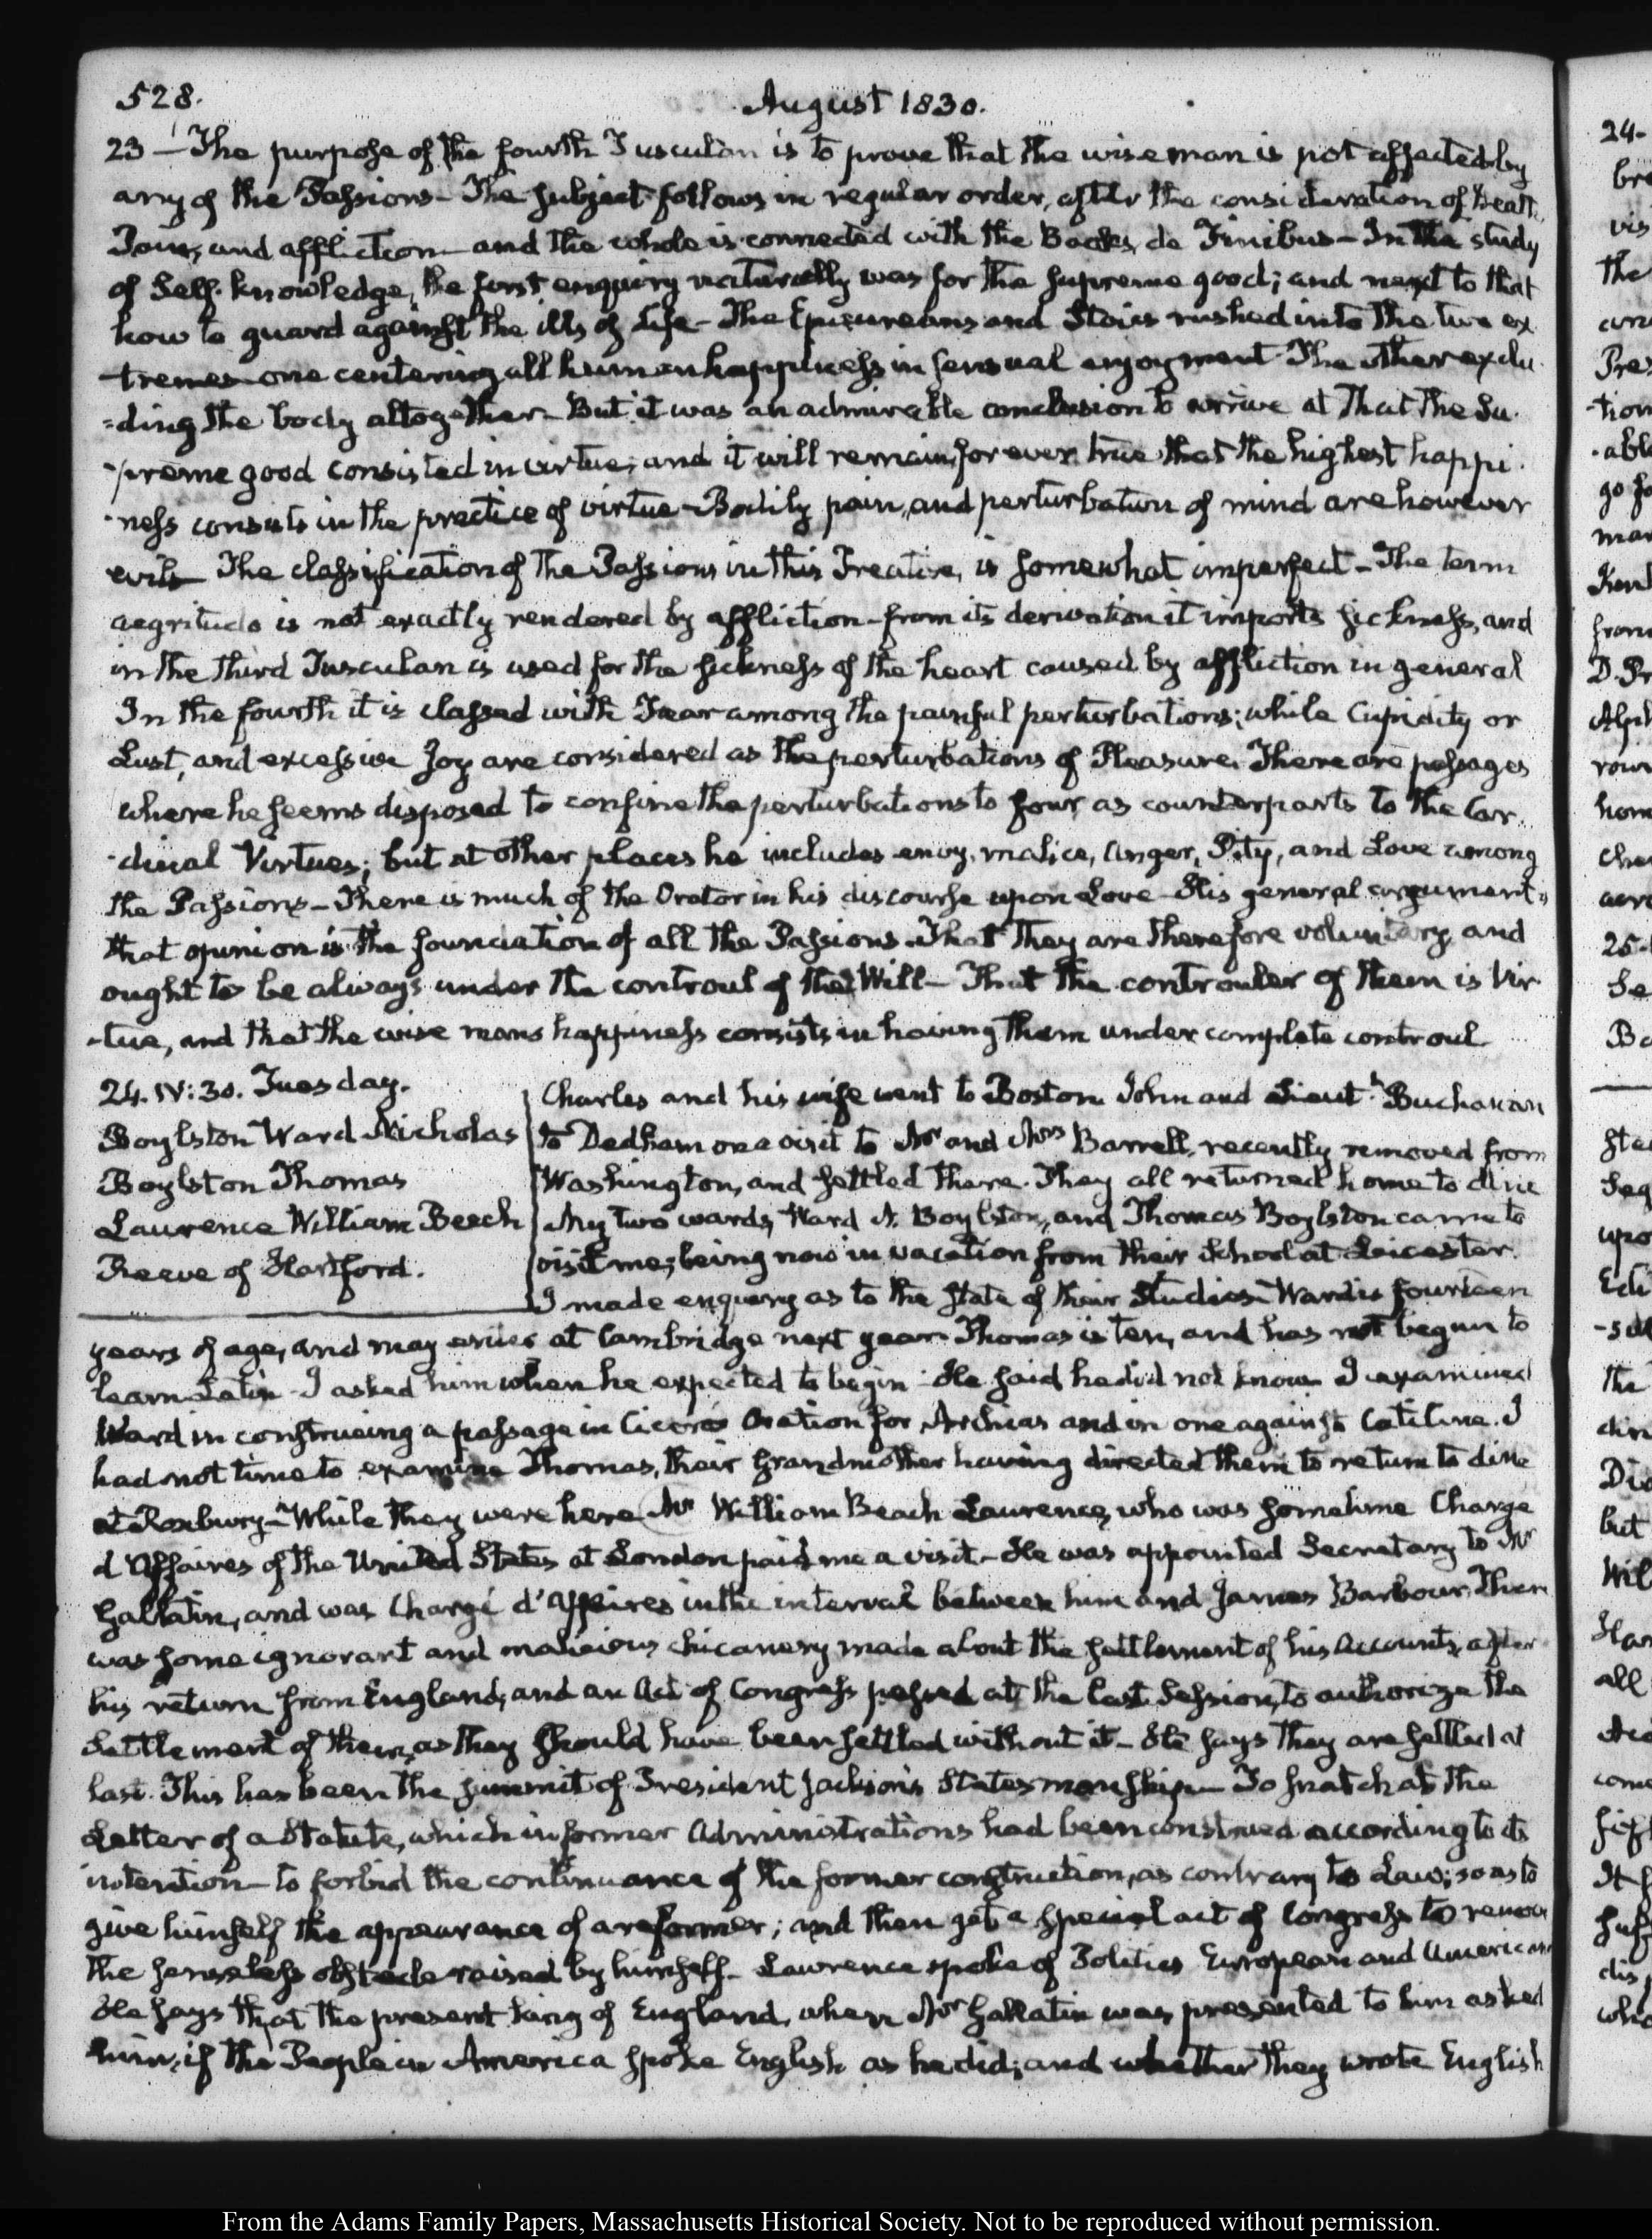 528.
August 1830.
23 — The purpose of the fourth Tusculan is to prove that the wise man is not affected by
any of the Passions — The subject follows in regular order, after the consideration of Death,
Pain, and affliction — and the whole is connected with the Books, de Finibus — In the study
of Self-knowledge, the first enquiry naturally was for the supreme good; and next to that
how to guard against the ills of Life — The Epicureans and Stoics rushed into the two ex
tremes — one centering all human happiness in sensual enjoyment — The other exclu-
-ding the body altogether — But it was an admirable conclusion to arrive at that the Su-
-preme good consisted in virtue; and it will remain for ever true that the highest happi-
-ness consists in the practice of virtue — Bodily pain, and perturbation of mind are however
evils — The classification of the Passions in this Treatise, is somewhat imperfect — The term
aegritudo is not exactly rendered by affliction — from its derivation it imports sickness, and
in the third Tusculan is used for the sickness of the heart caused by affliction in general
In the fourth it is classed with Fear among the painful perturbations; while Cupidity or
Lust, and excessive Joy are considered as the perturbations of Pleasure. There are passages
where he seems disposed to confine the perturbations to four, as counterparts to the Car-
-dinal Virtues; but at other places he includes envy, malice, Anger, Pity, and Love among
the Passions — There is much of the Orator in his discourse upon Love — His general argument is
that opinion is the foundation of all the Passions — That they are therefore voluntary, and
ought to be always under the controul of the Will — That the controuler of them is Vir-
-tue, and that the wise mans happiness consists in having them under complete controul.
24. IV:30. Tuesday.
Boylston Ward Nicholas
Boylston Thomas
Laurence William Beech
Reeve of Hartford.
Charles and his wife went to Boston. John and Lieut.t Buchanan
to Dedham on a visit to Mr and Mrs Barrell, recently removed from
Washington, and settled there. They all returned home to dine
My two wards, Ward N. Boylston, and Thomas Boylston came to
visit me; being now in vacation from their School at Leicester.
I made enquiry as to the state of their Studies — Ward is fourteen
years of age, and may enter at Cambridge next year. Thomas is ten, and has not begun to
learn Latin — I asked him when he expected to begin — He said he did not know. I examined
Ward in construing a passage in Cicero's Oration for Archias and in one against Catiline. I
had not time to examine Thomas, their Grandmother having directed them to return to dine
at Roxbury — While they were here Mr William Beach Laurence, who was sometime Charge
d'Affaires of the United States at London paid me a visit — He was appointed Secretary to Mr
Gallatin, and was Chargé d'Affaires in the interval between him and James Barbour. There
was some ignorant and malicious chicanery made about the settlement of his Accounts, after
his return from England, and an Act of Congress passed at the last Session, to authorize the
settlement of them, as they should have been settled without it — He says they are settled at
last. This has been the summit of President Jackson's Statesmanship — To snatch at the
Letter of a Statute, which in former Administrations had been construed according to its
intention — to forbid the continuance of the former construction, as contrary to Law; so as to
give himself the appearance of a reformer; and then get a special act of Congress to remove
the senseless obstacle raised by himself — Lawrence spoke of Politics European and American
He says that the present king of England, when Mr Gallatin was presented to him asked
him, if the People in America spoke English as he did; and whether they wrote English
From the Adams Family Papers, Massachusetts Historical Society. Not to be reproduced without permission.